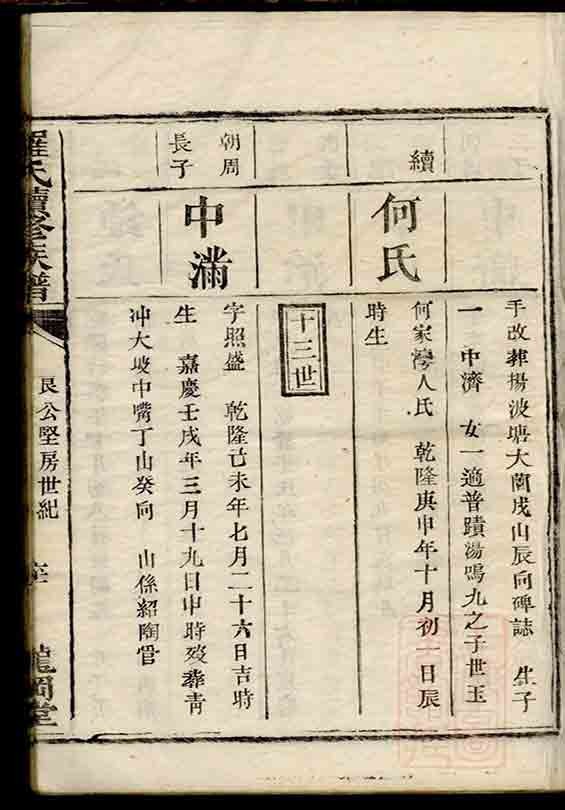 手改葬楊波塘大園戌山辰向碑誌 生子
一 中濟 女一適普蹟湯鳴九之子世玉
續
何氏
何家灣人氏 乾隆庚申年十月初一日辰
時生
十三世
朝周
長子
中滿
字照盛 乾隆己未年七月二十六日吉時
生 嘉慶壬戌年三月十九日申時歿葬青
冲大坡中嘴丁山癸向 山係紹陶管
羅氏續修族譜
艮公堅房世紀
龍岡堂